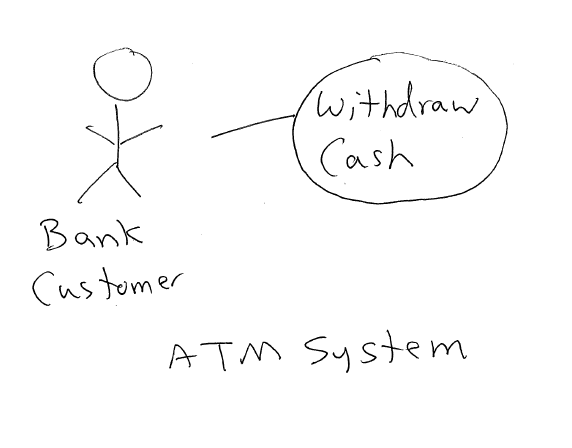 Withdraw
Cash
Bank
Customer
ATM System